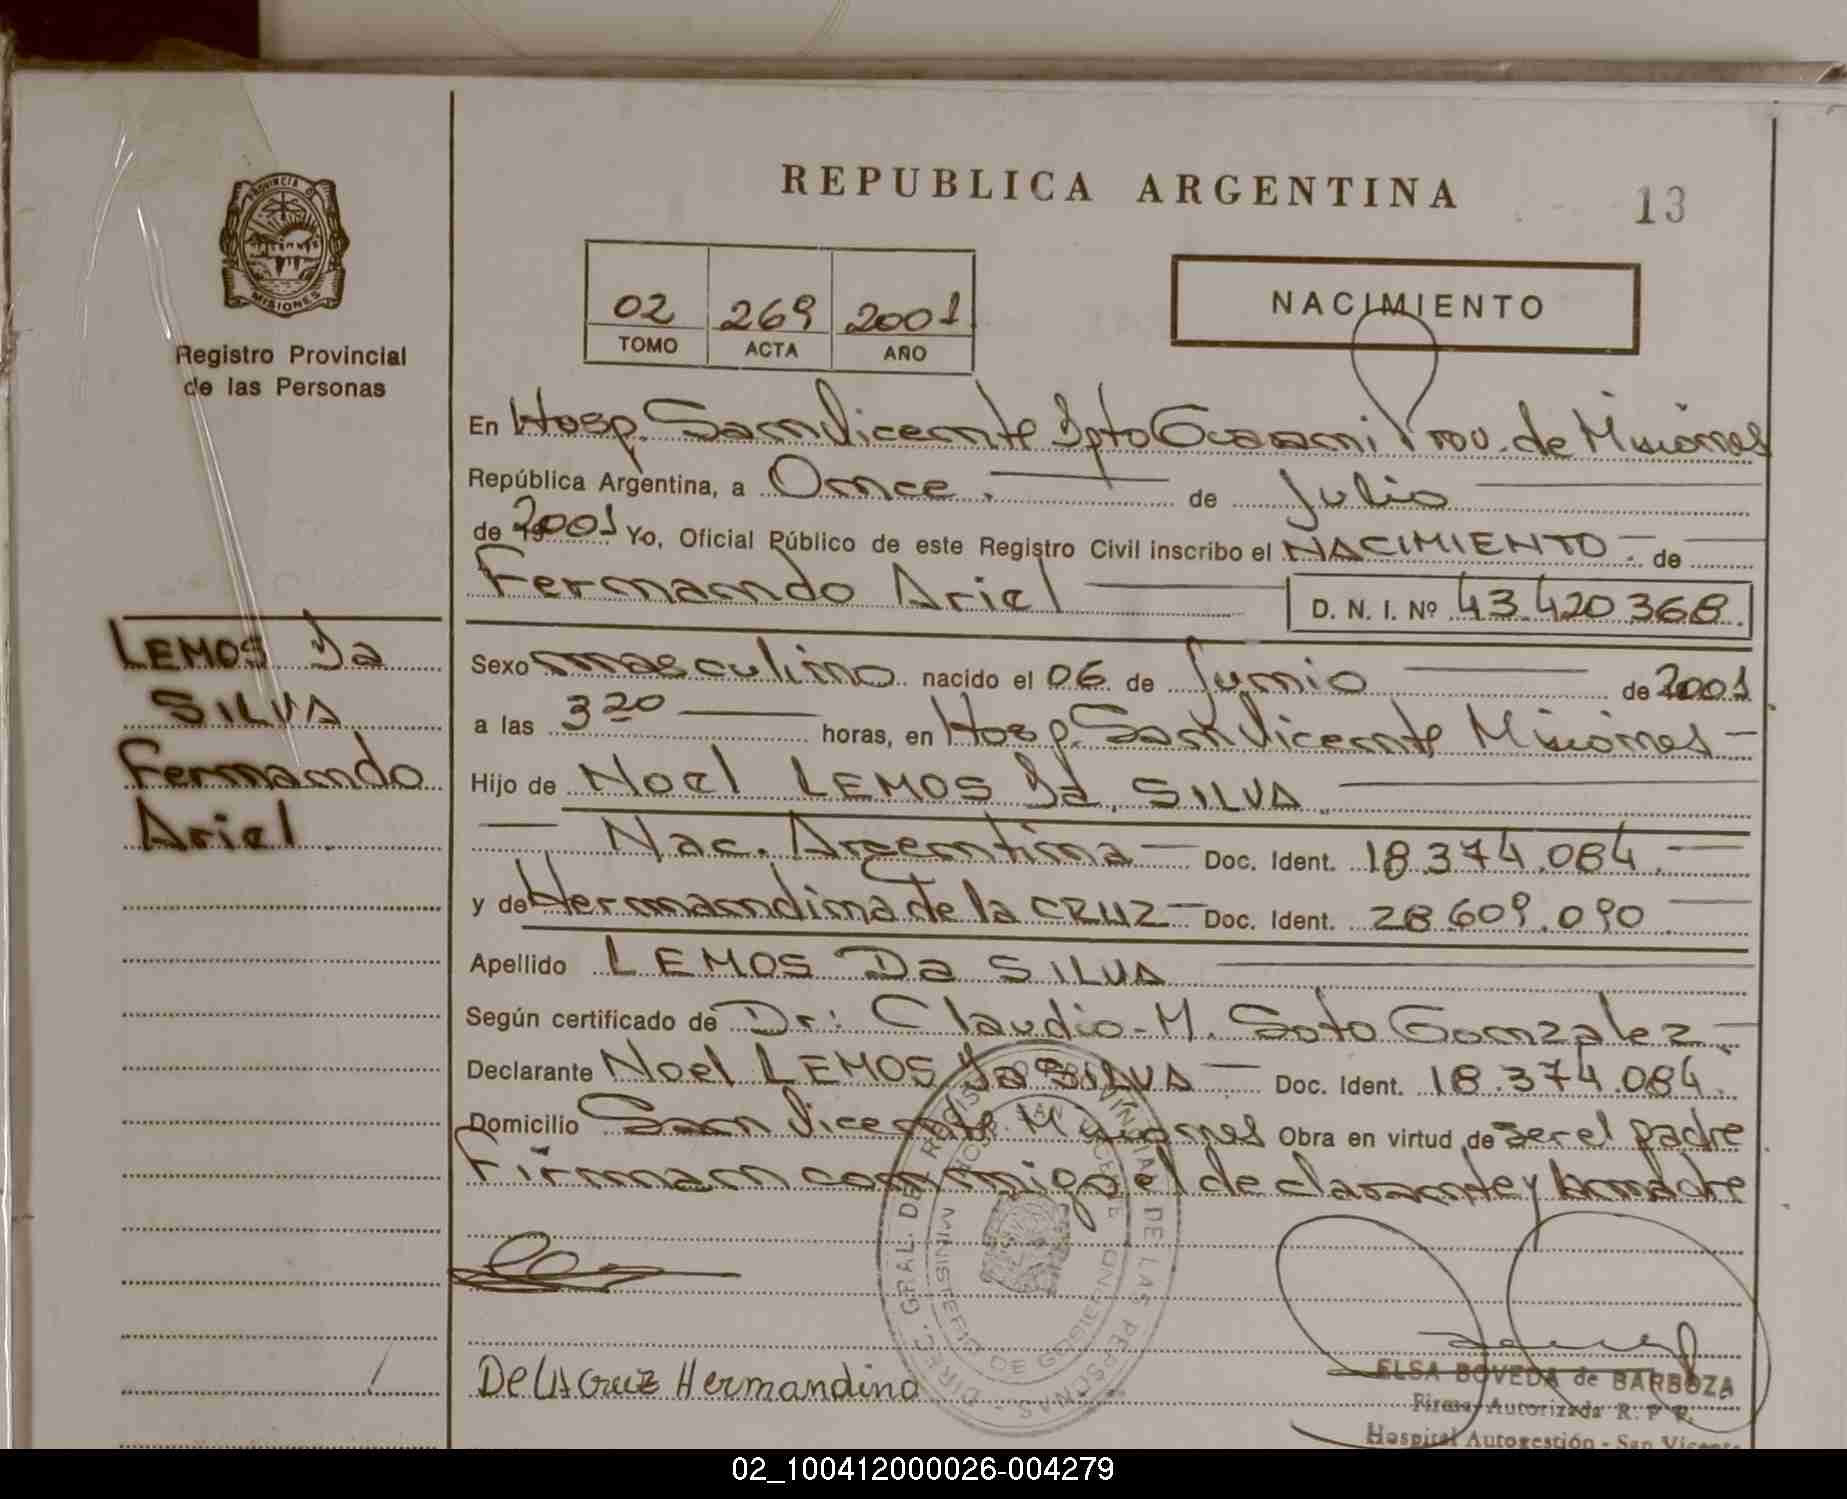 REPUBLICA ARGENTINA
13
PROVINCIA DE
MISIONES
Registro Provincial
de las Personas
02 269 2001
TOMO ACTA AÑO
NACIMIENTO
En Hosp. San Vicente Dpto Guarani Prov. de Misiones
República Argentina, a Once. de Julio
de 2001 Yo, Oficial Público de este Registro Civil inscribo el NACIMIENTO. de
Fernando Ariel D. N. I. Nº 43.420368.
LEMOS Da
SILVA
Fernando
Ariel.
Sexo masculino nacido el 06 de Junio de 2001
a las 3 20 horas, en Hosp. San Vicente Misiones
Hijo de Noel LEMOS Da SILVA
Nac. Argentina Doc. Ident. 18.374.084.
y de Hernandina de la CRUZ Doc. Ident. 28.609.090
Apellido LEMOS Da SILVA
Según certificado de Dr: Claudio M. Soto Gonzalez
Declarante Noel LEMOS Da SILVA Doc. Ident. 18.374.084.
Domicilio San Vicente Misiones Obra en virtud de ser el padre
Firman conmigo el declarante y la madre
DIREC. GRAL. DEL REGISTRO PROVINCIAL DE LAS PERSONAS
HOSP. SAN VICENTE
MINISTERIO DE GOBIERNO
De LA Cruz Hernandina
ELSA BOVEDA de BARBOZA
Firma Autorizada R. P. P.
Hospital Autogestión - San Vicente
02_100412000026-004279